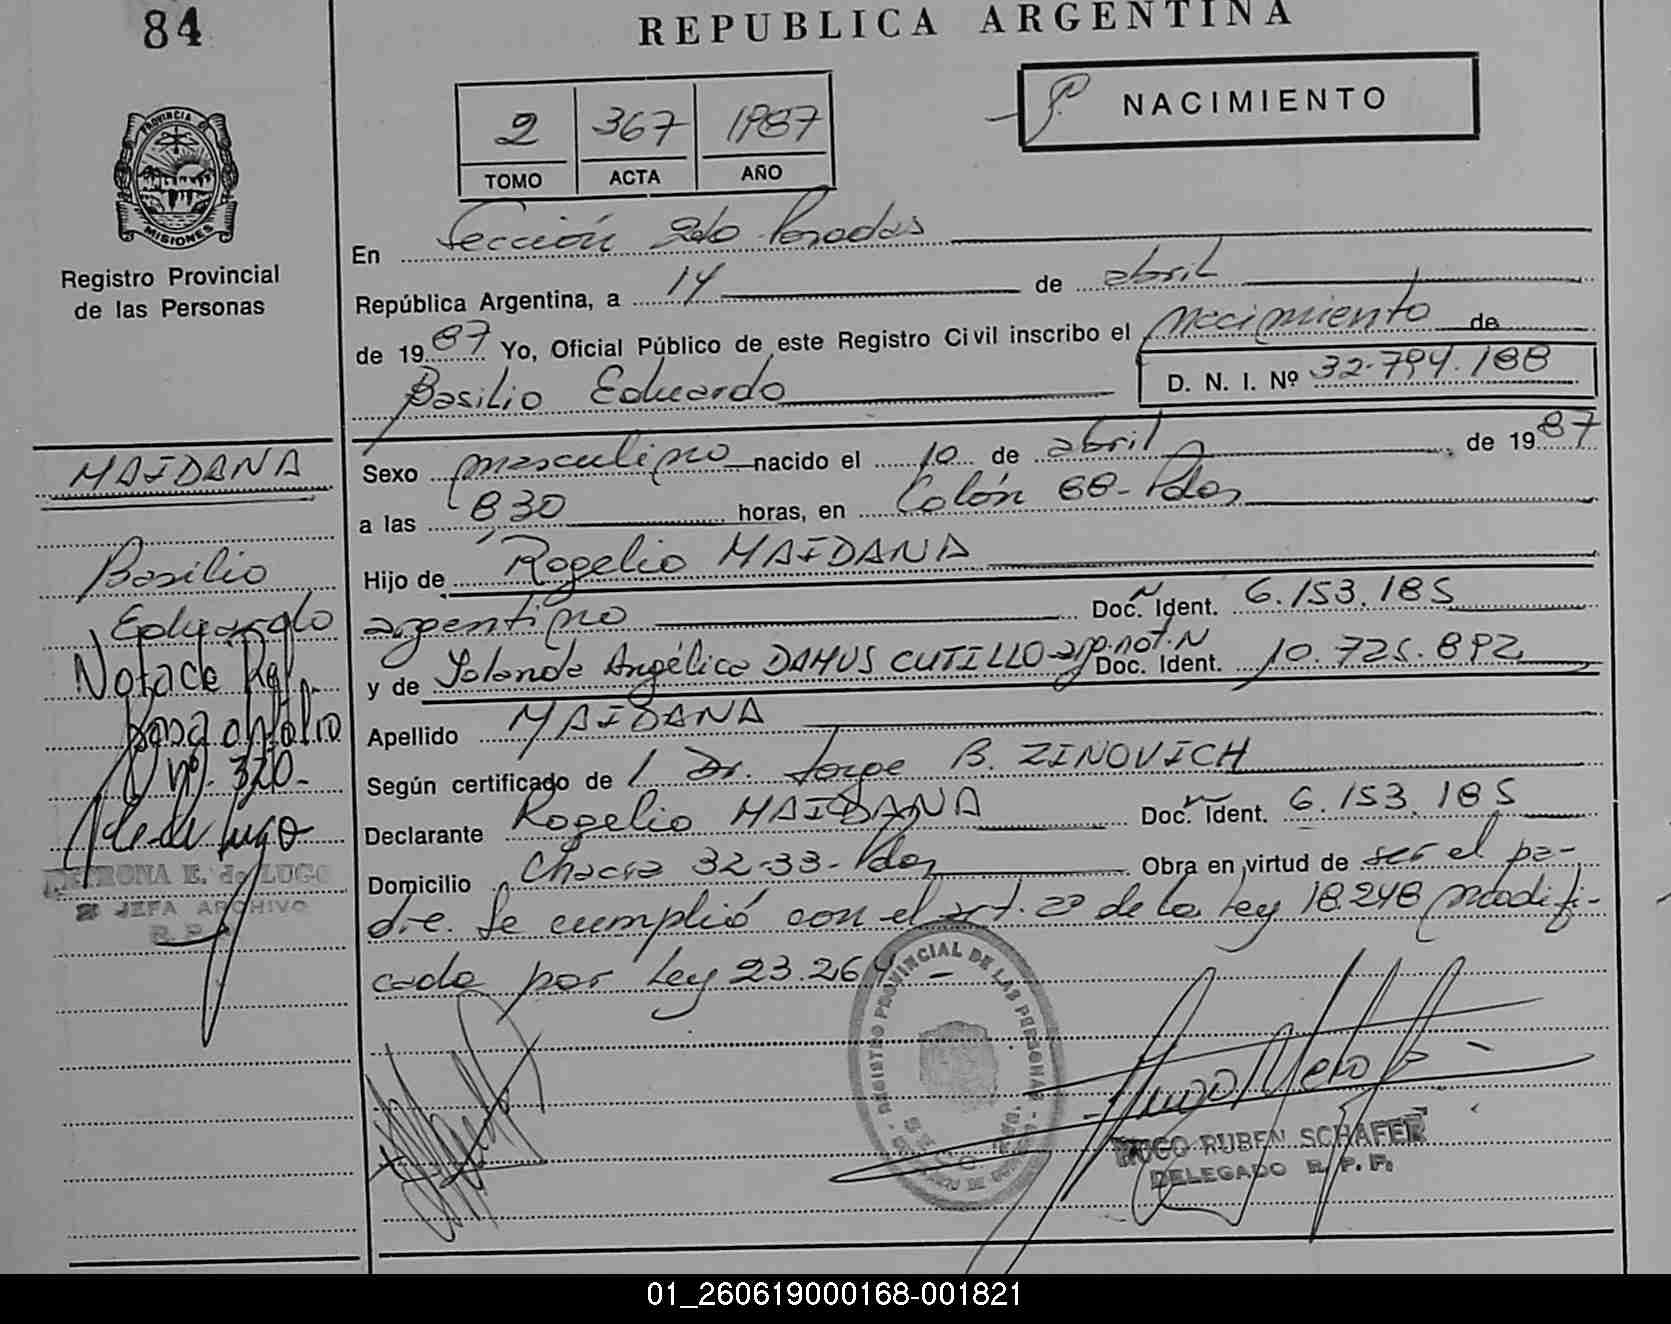 84
REPUBLICA ARGENTINA
2 367 1987
TOMO ACTA AÑO
NACIMIENTO
PROVINCIA DE
MISIONES
Registro Provincial
de las Personas
En Sección 2da Posadas
República Argentina, a 14 de abril
de 1987 Yo, Oficial Público de este Registro Civil inscribo el nacimiento de
Basilio Eduardo D. N. I. Nº 32.794.188
Sexo masculino nacido el 10 de abril de 1987
a las 8,30 horas, en Colón 68- Pdas
Hijo de Rogelio MAIDANA
argentino Doc. Ident. 6.153.185
y de Yolanda Angélica DAHUS CUTILLO arg.not.N Doc. Ident. 10.725.892
Apellido MAIDANA
Según certificado de / Dr. Jorge B. ZINOVICH
Declarante Rogelio MAIDANA Doc. Ident. 6.153.185
Domicilio Chacra 32-33- Pdas Obra en virtud de ser el pa-
dre. Se cumplió con el art. 2º de la Ley 18.248 modifi-
cada por Ley 23.264 -
MAIDANA
Basilio
Eduardo
nº. 320-
PETRONA E. de LUGO
JEFA ARCHIVO
R. P.
REGISTRO PROVINCIAL DE LAS PERSONAS
HUGO RUBEN SCHAFER
DELEGADO R. P. P.
01_260619000168-001821